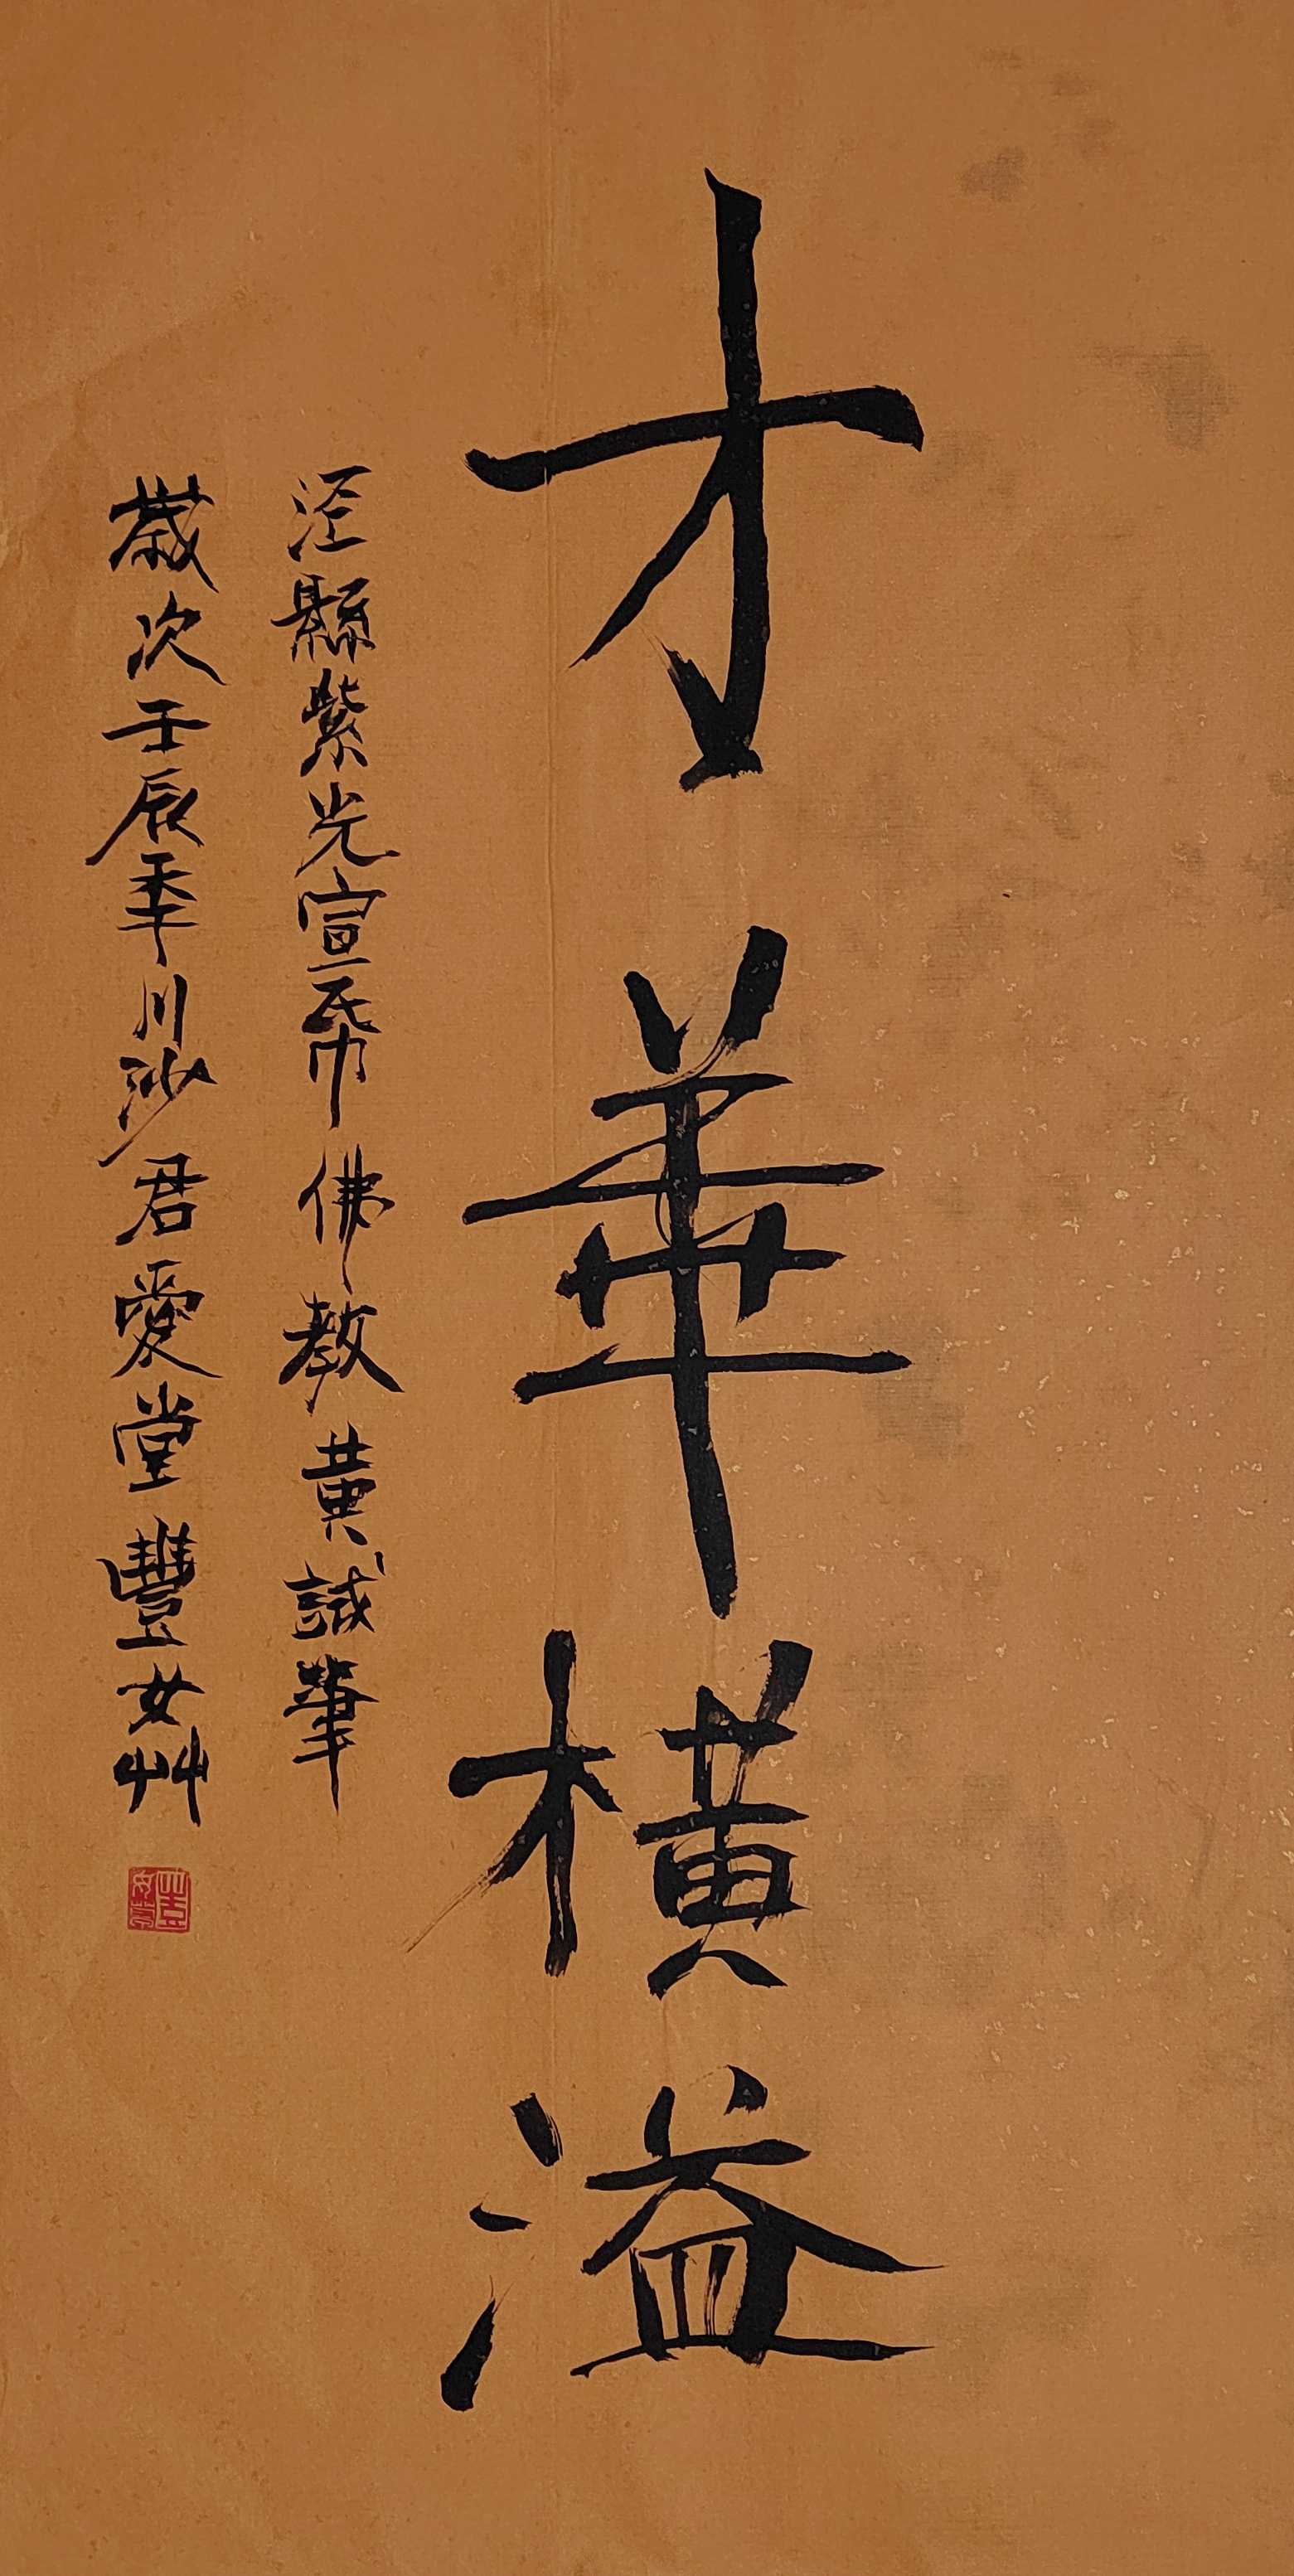 才華橫溢
涇縣紫光宣帋佛教黃誠筆
歲次壬辰年川沙君愛堂豐女艸